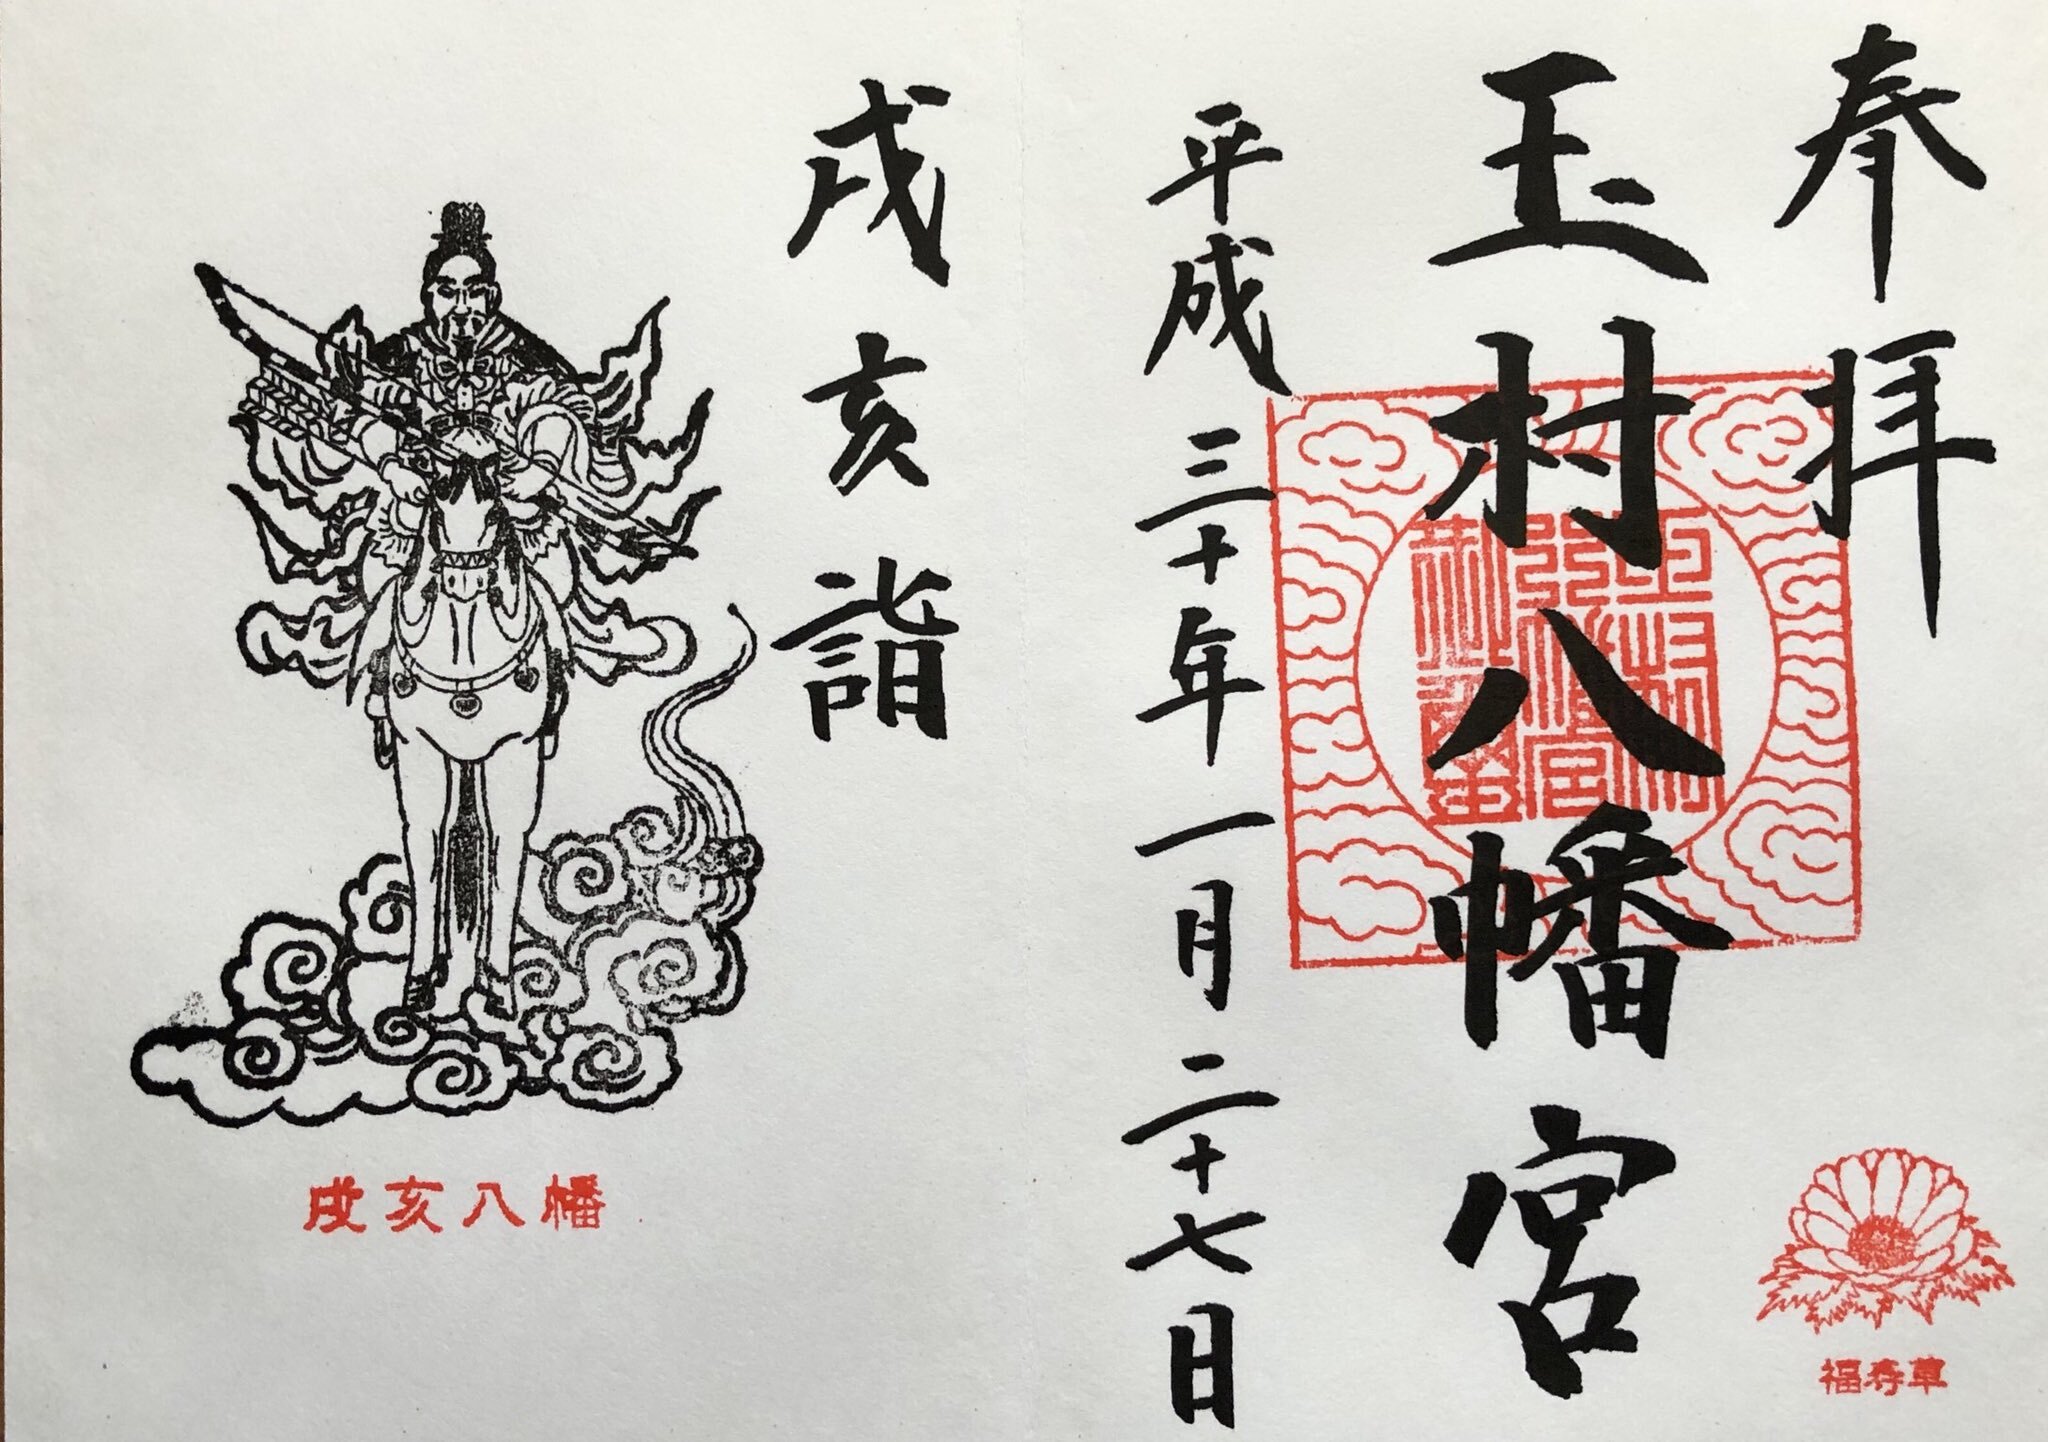 奉拝
玉村八幡宮
平成三十年一月二十七日
福寿草
戌亥詣
戌亥八幡